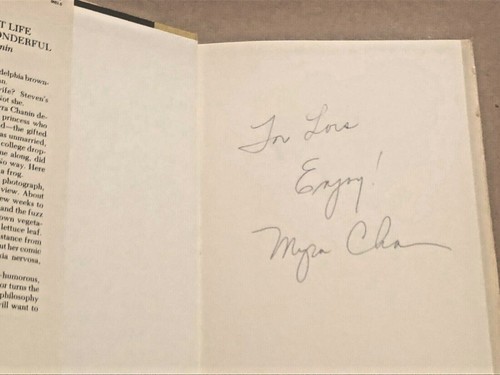 T LIFE
NDERFUL
nin
delphia brown-
on.
vife? Steven's
Not she.
ra Chanin de-
princess who
d—the gifted
as unmarried,
college drop-
me along, did
No way. Here
a frog.
photograph,
view. About
ew weeks to
and the fuzz
own vegeta-
lettuce leaf.
stance from
ut her comic
ia nervosa,
-humorous,
or turns the
philosophy
ill want to
For Lois
Enjoy!
Myra Chanin